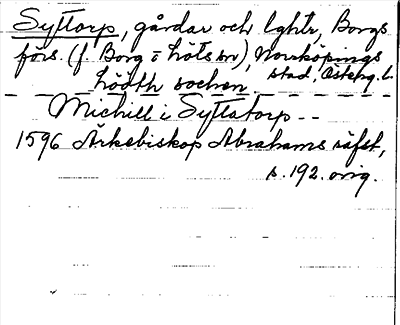 Syttorp, gårdar och lghtr, Borgs
förs (f. Borg o Löts sn), Norrköpings
stad, Östehg. l.
hödth sochen
Michill i Syttatorp --
1596 Ärkebiskop Abrahams räfst,
s. 192. orig.